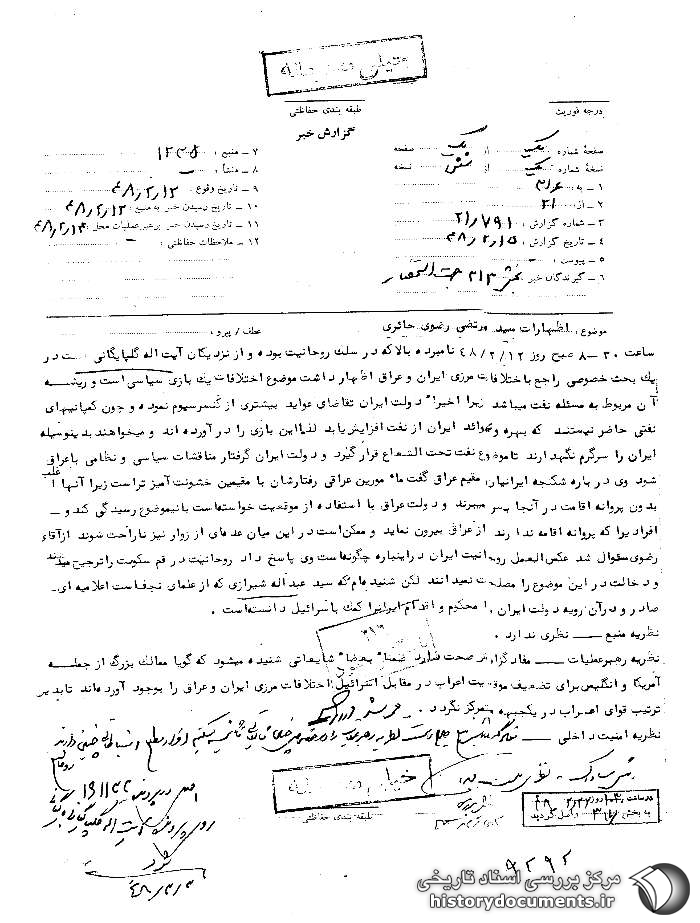 خیلی محرمانه
درجه فوریت
طبقه بندی حفاظتی
گزارش خبر
صفحهٔ شماره یک از یک صفحه
نسخهٔ شماره یک از شش نسخه
۱ - به ۳۱۶
۲ - از ۲۱
۳ - شماره گزارش ۲۱/۷۹۱
۴ - تاریخ گزارش ۴۸/۲/۱۵
۵ - پیوست
۶ - گیرندگان خبر بخش ۳۱۲
۷ - منبع ۱۲۳۵
۸ - منشأ
۹ - تاریخ وقوع ۴۸/۲/۱۲
۱۰ - تاریخ رسیدن خبر به منبع ۴۸/۲/۱۲
۱۱ - تاریخ رسیدن خبر برهبر عملیات محل ۴۸/۲/۱۴
۱۲ - ملاحظات حفاظتی
موضوع: اظهارات سید مرتضی رضوی حائری
عطف / پیرو:
ساعت ۳۰-۸ صبح روز ۴۸/۲/۱۲ نامبرده بالا که در سلک روحانیت بوده و از نزدیکان آیت اله گلپایگانی است در
یک بحث خصوصی راجع باختلافات مرزی ایران و عراق اظهار داشت موضوع اختلافات یک بازی سیاسی است و ریشه
آن مربوط به مسئله نفت میباشد زیرا اخیرا" دولت ایران تقاضای عواید بیشتری از کنسرسیوم نموده و چون کمپانیهای
نفتی حاضر نیستند که بهره و عوائد ایران از نفت افزایش یابد لذا این بازی را در آورده اند و میخواهند بدینوسیله
ایران را سرگرم نگهدارند تا موضوع نفت تحت الشعاع قرار گیرد و دولت ایران گرفتار مناقشات سیاسی و نظامی با عراق
شود وی در باره شکنجه ایرانیان مقیم عراق گفت مأمورین عراقی رفتارشان با مقیمین خشونت آمیز تر است زیرا آنها اغلب
بدون پروانه اقامت در آنجا بسر میبرند و دولت عراق با استفاده از موقعیت خواسته است باینموضوع رسیدگی کند و -
افرادیرا که پروانه اقامه ندارند از عراق بیرون نماید و ممکن است در این میان عده ای از زوار نیز ناراحت شوند از آقای
رضوی سؤوال شد عکس العمل روحانیت ایران در اینباره چگونه است وی پاسخ داد روحانیت در قم سکوت را ترجیح میدهند
و دخالت در این موضوع را مصلحت نمیدانند لکن شنیده ام که سید عبداله شیرازی که از علمای نجف است اعلامیه ای -
صادر و در آن رویه دولت ایران را محکوم و اقدام ایران را کمک باسرائیل دانسته است .
نظریه منبع - نظری ندارد .
۳۱۶
نظریه رهبر عملیات - مفاد گزارش صحت دارد ضمنا" بعضا" شایعاتی شنیده میشود که گویا ممالک بزرگ از جمله
آمریکا و انگلیس برای تضعیف موقعیت اعراب در مقابل اسرائیل اختلافات مرزی ایران و عراق را بوجود آورده اند تا بدین
ترتیب قوای اعراب در یکجبهه متمرکز نگردد .
نظریه امنیت داخلی -
خیلی محرمانه
طبقه بندی حفاظتی
به بخش ۳۱۶ واصل گردید
۹۲۹۲
مرکز بررسی اسناد تاریخی
historydocuments.ir